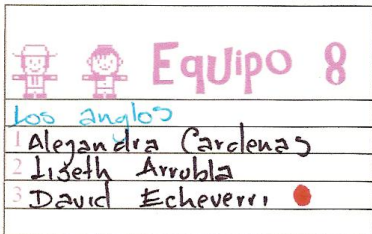 Equipo 8
Los anglos
1 Alejandra Cardenas
2 Liseth Arrubla
3 David Echeverri